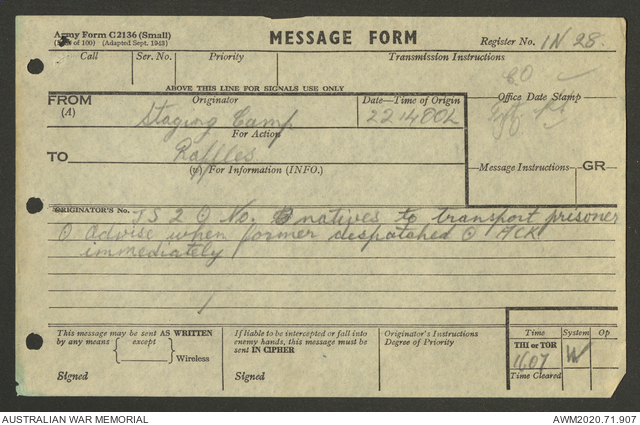 Army Form C2136 (Small)
(Pads of 100) (Adapted Sept. 1943)
MESSAGE FORM
Register No. IN 28.
Call Ser. No. Priority Transmission Instructions
CO
ABOVE THIS LINE FOR SIGNALS USE ONLY
FROM
(A)
Originator
Staging Camp
Date—Time of Origin
221400L
Office Date Stamp
For Action
TO
Raffles
(W) For Information (INFO.)
Message Instructions GR
ORIGINATOR'S No. TS2 O No. 3 natives to transport prisoner
O Advise when former despatched O ACK
immediately
This message may be sent AS WRITTEN
by any means except
Wireless
Signed
If liable to be intercepted or fall into
enemy hands, this message must be
sent IN CIPHER
Signed
Originator's Instructions
Degree of Priority
Time System Op
THI or TOR
1607 W
Time Cleared
AUSTRALIAN WAR MEMORIAL AWM2020.71.907